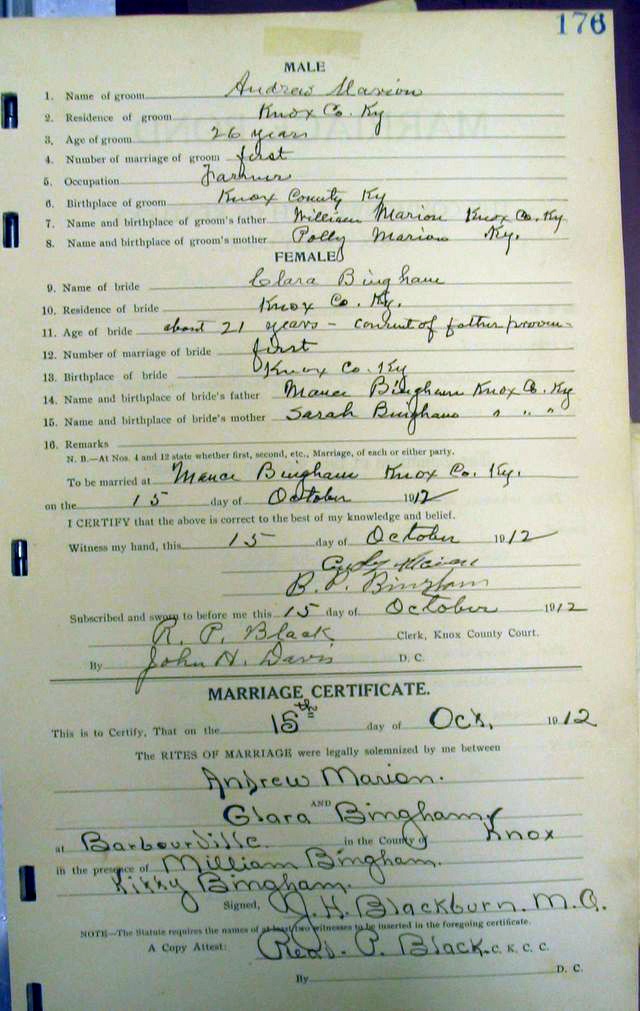 176
MALE
1. Name of groom Andrew Marion
2. Residence of groom Knox Co. Ky
3. Age of groom 26 years
4. Number of marriage of groom first
5. Occupation Farmer
6. Birthplace of groom Knox County Ky
7. Name and birthplace of groom's father William Marion Knox Co. Ky
8. Name and birthplace of groom's mother Polly Marion Ky.
FEMALE
9. Name of bride Clara Bingham
10. Residence of bride Knox Co. Ky.
11. Age of bride about 21 years - consent of father proven
12. Number of marriage of bride first
13. Birthplace of bride Knox Co. Ky
14. Name and birthplace of bride's father Mance Bingham Knox Co. Ky
15. Name and birthplace of bride's mother Sarah Bingham " " "
16. Remarks
N. B.—At Nos. 4 and 12 state whether first, second, etc., Marriage, of each or either party.
To be married at Mance Bingham Knox Co. Ky.
on the 15 day of October 1912
I CERTIFY that the above is correct to the best of my knowledge and belief.
Witness my hand, this 15 day of October 1912
B. P. Bingham
Subscribed and sworn to before me this 15 day of October 1912
R. P. Black Clerk, Knox County Court.
By John H. Davis D. C.
MARRIAGE CERTIFICATE.
This is to Certify, That on the 15th day of Oct. 1912
The RITES OF MARRIAGE were legally solemnized by me between
Andrew Marion.
AND
Clara Bingham
at Barbourville in the County of Knox
in the presence of William Bingham.
Bingham.
Signed, J. H. Blackburn. M. G.
NOTE—The Statute requires the names of at least two witnesses to be inserted in the foregoing certificate.
A Copy Attest: Read. P. Black. C. K. C. C.
By D. C.